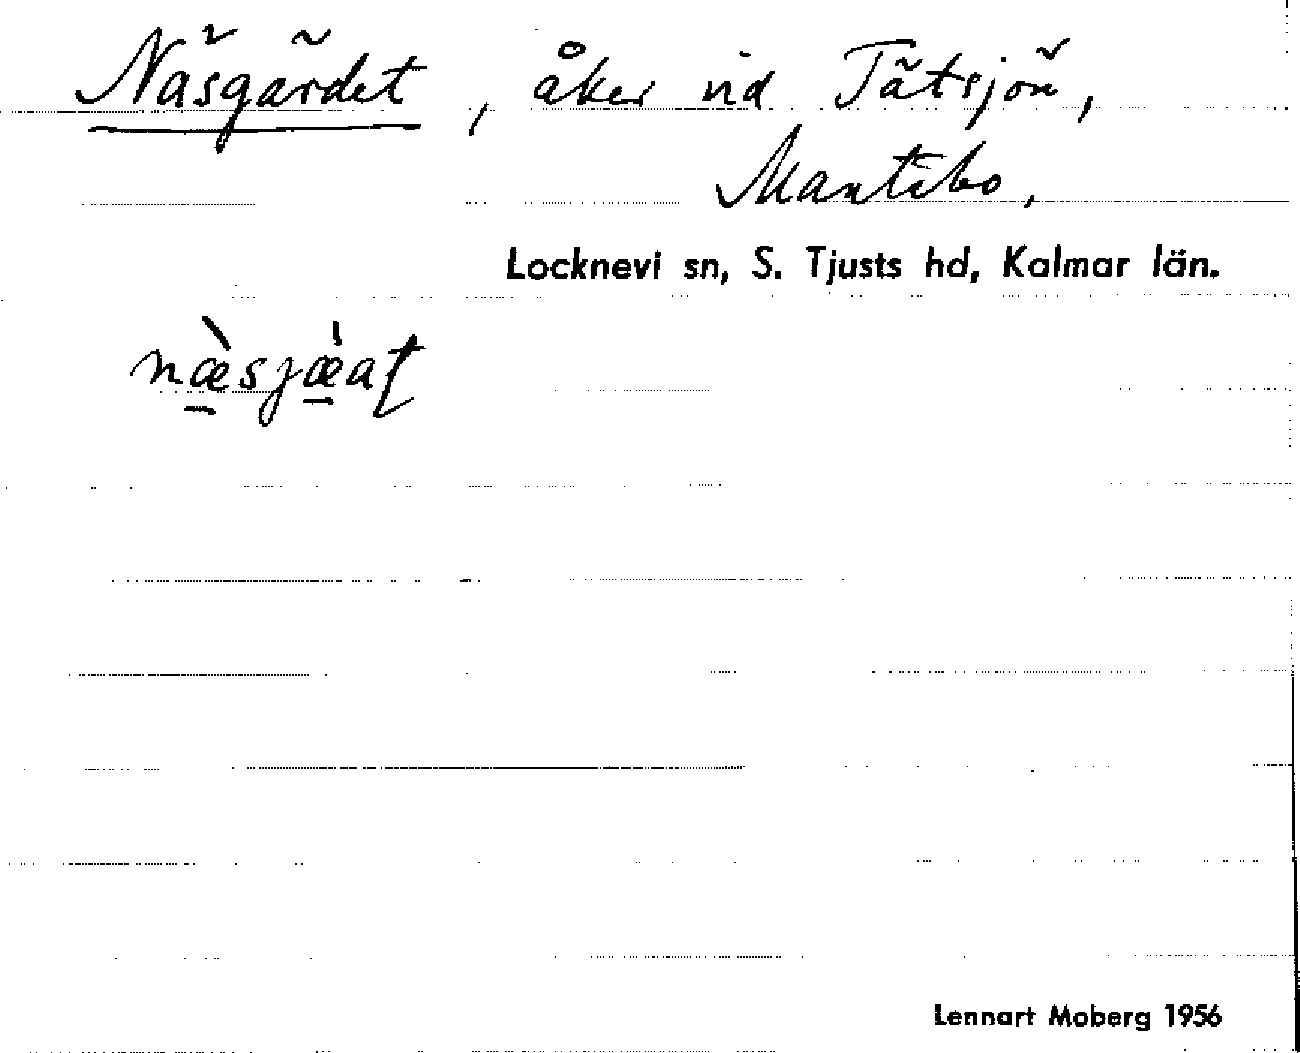 Näsgärdet, åker vid Tätsjön,
Mantebo,
Locknevi sn, S. Tjusts hd, Kalmar län.
næ̀sjæ̀at
Lennart Moberg 1956